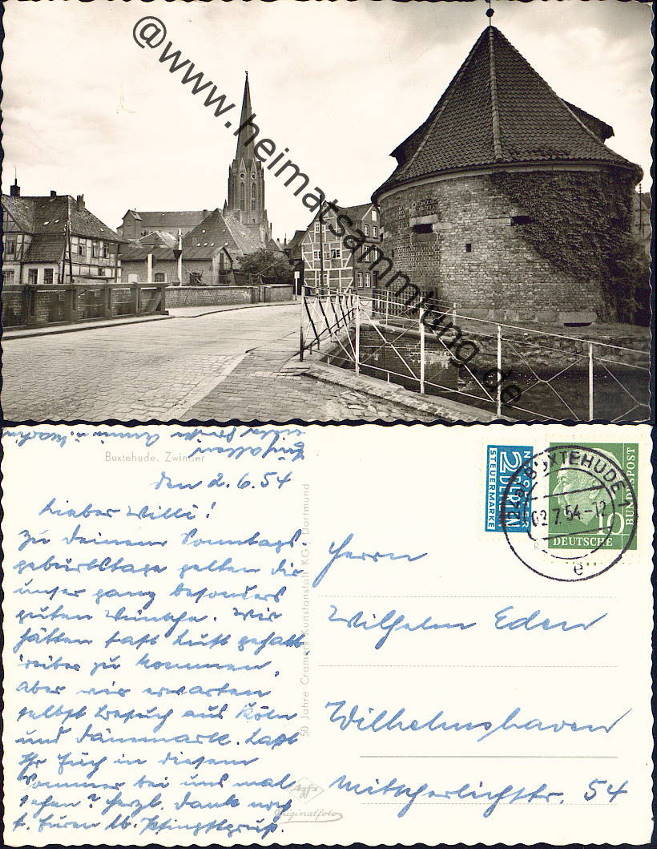 @www.heimatsammlung.de
Buxtehude, Zwinger
den 2.6.54
Lieber Willi!
Zu Deinem Sonntags-
geburtstage gelten dir
unser ganz besonders
guten Wünsche. Wir
hätten fast Lust gehabt
rüber zu kommen,
aber wir erwarten
selbst Besuch aus Köln
und Dänemark. Laßt
Ihr Euch in diesem
Sommer bei uns mal
sehen? Herzl. Dank noch
f. Euren lb. Pfingstgruß.
Euch allen
50 Jahre Cramers Kunstanstalt KG., Dortmund
Agfa
Originalfoto
NOTOPFER
2 BERLIN
STEUERMARKE
BUXTEHUDE 1
02.7.54-12
e
10
DEUTSCHE
BUNDESPOST
Herrn
Wilhelm Eden
Wilhelmshaven
Mitscherlichstr. 54